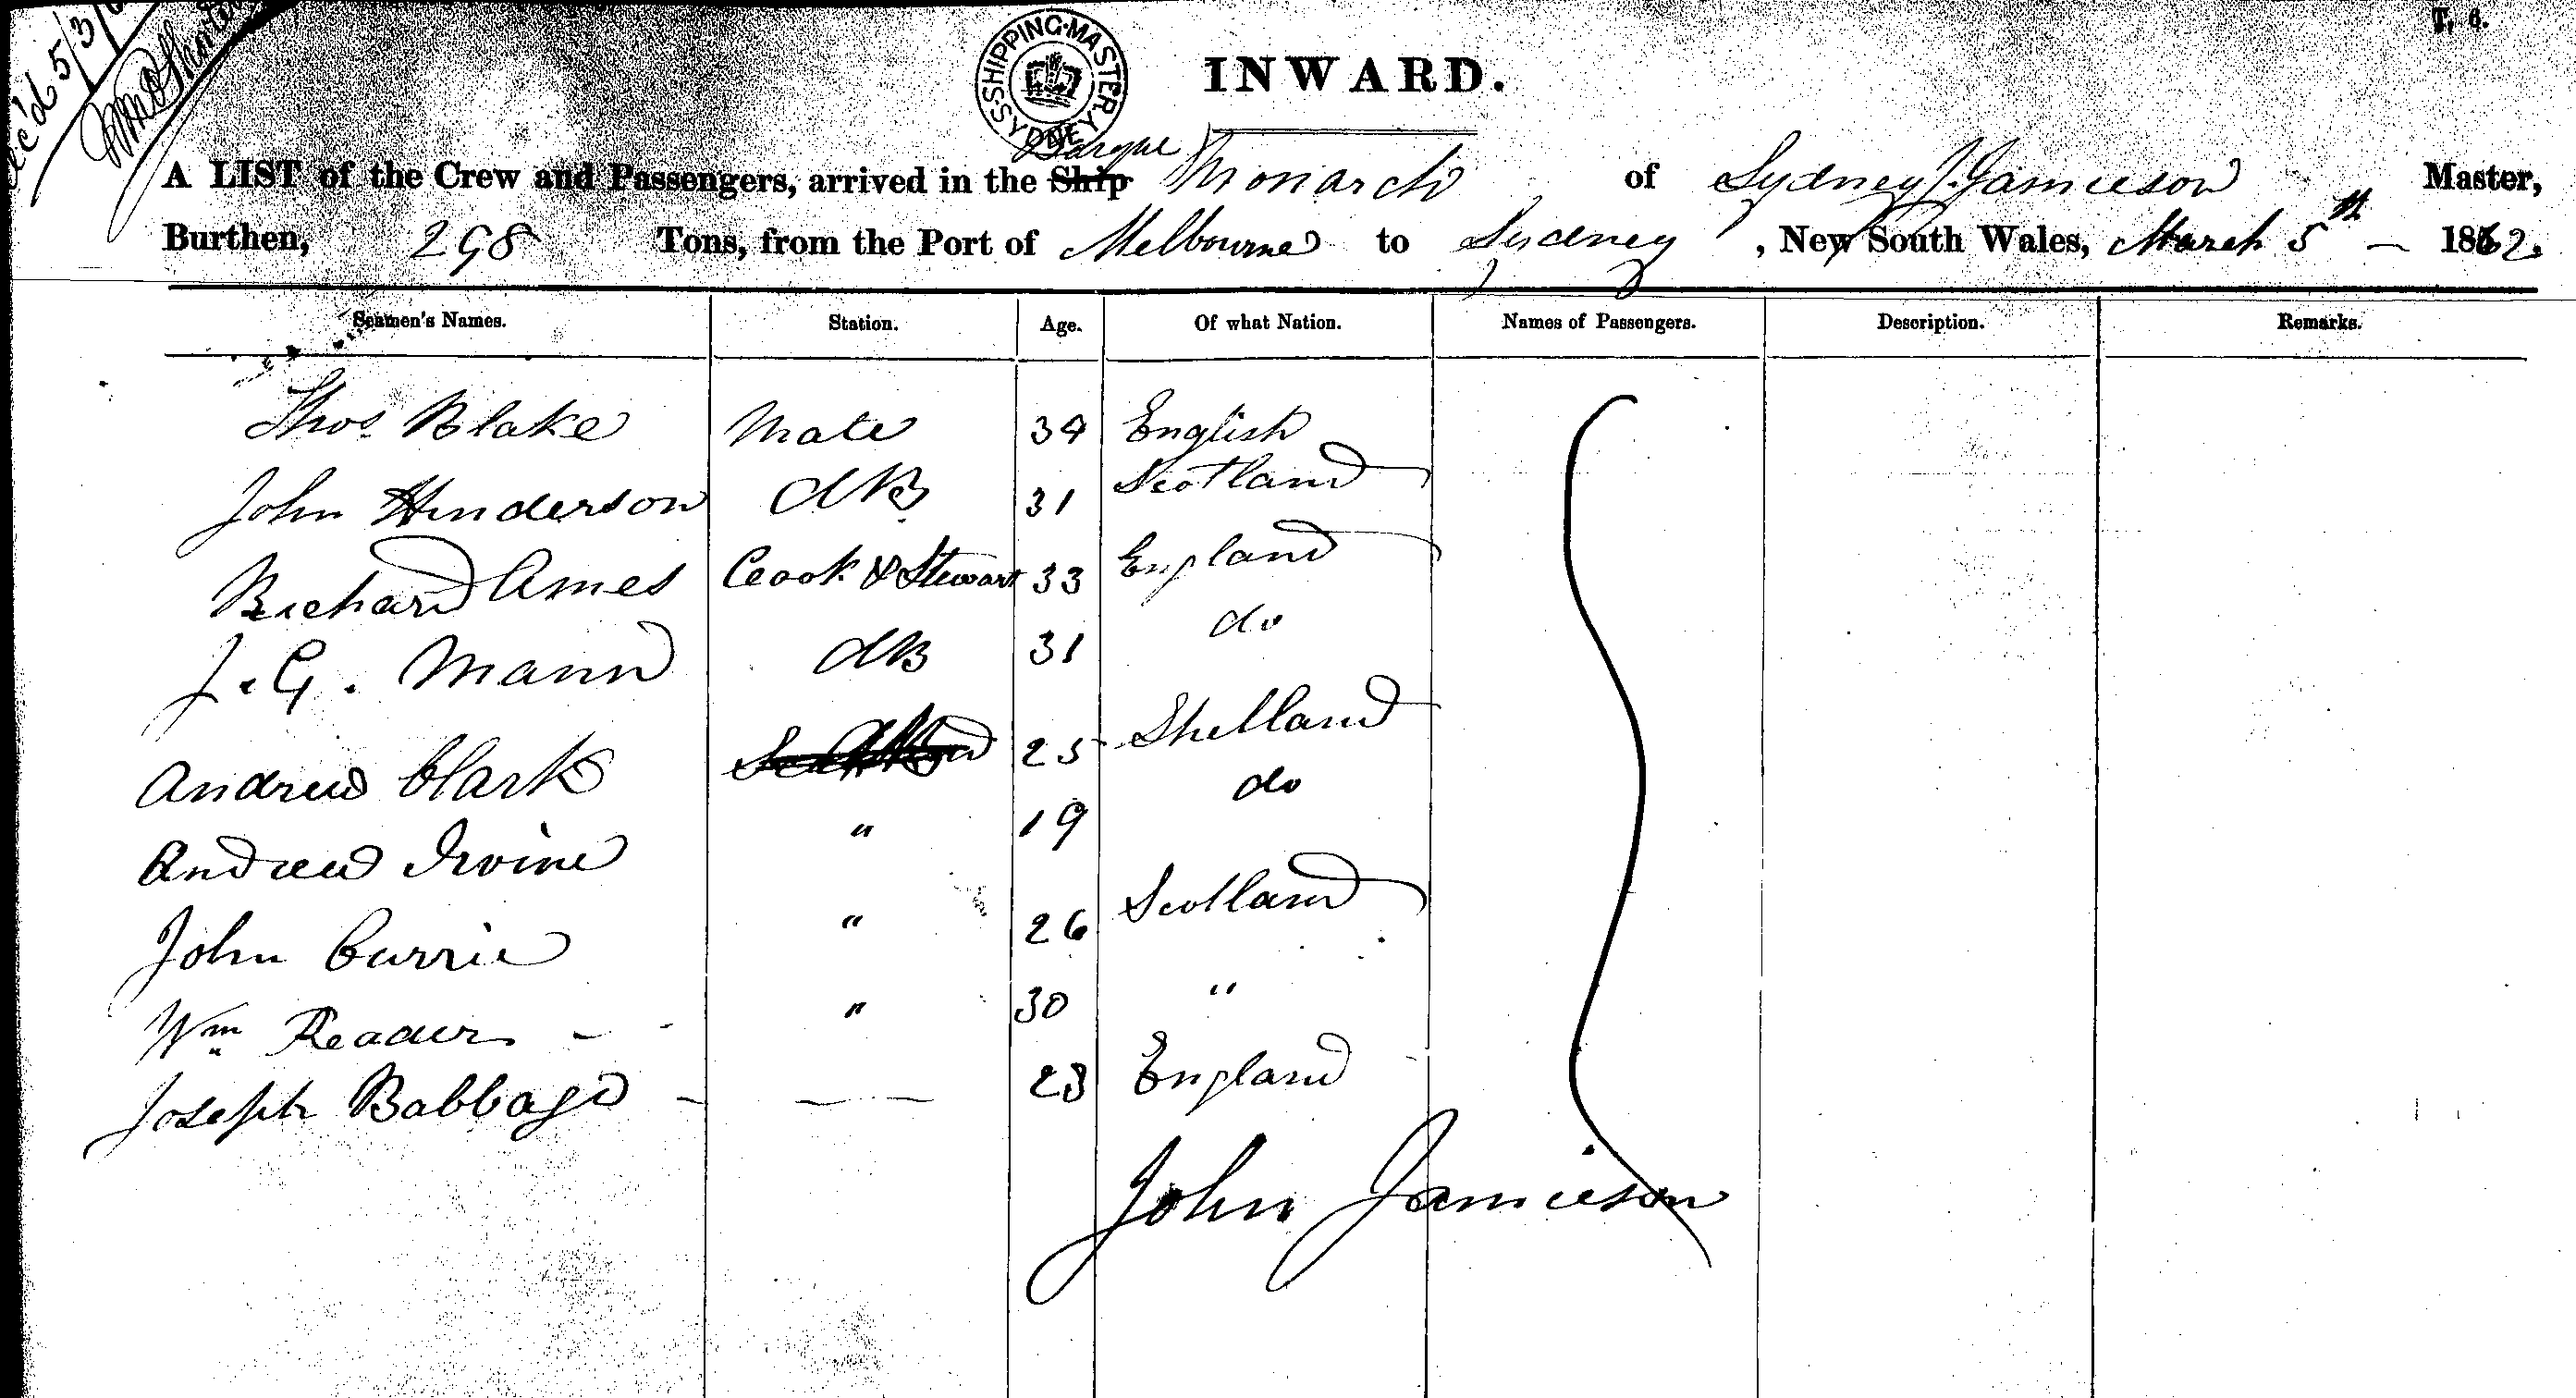 Rec'd 5/3/6
T. 6.
SHIPPING·MASTER SYDNEY
INWARD.
Barque
A LIST of the Crew and Passengers, arrived in the Ship Monarch of Sydney J. Jamieson Master,
Burthen, 298 Tons, from the Port of Melbourne to Sydney, New South Wales, March 5th 1862.
Seamen's Names. Station. Age. Of what Nation. Names of Passengers. Description. Remarks.
Thos. Blake Mate 34 English
John Henderson AB 31 Scotland
Richard Ames Coook & Stewart 33 England
J. G. Mann AB 31 do
Andrew Clark 25 Shetland
Andrew Irvine " 19 do
John Currie " 26 Scotland
Wm Reader - - " 30 "
Joseph Babbage - — — 23 England
John Jamieson